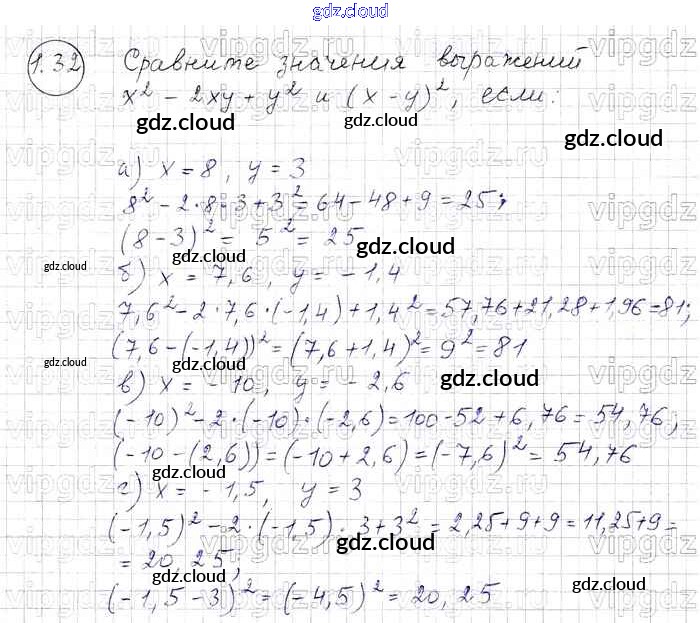 gdz.cloud
1.32 Сравните значения выражений
x² - 2xy + y² и (x - y)², если:
gdz.cloud gdz.cloud
а) x = 8, y = 3
8² - 2·8·3 + 3² = 64 - 48 + 9 = 25;
(8 - 3)² = 5² = 25
gdz.cloud gdz.cloud gdz.cloud
б) x = 7,6, y = -1,4
7,6² - 2·7,6·(-1,4) + 1,4² = 57,76 + 21,28 + 1,96 = 81;
(7,6 - (-1,4))² = (7,6 + 1,4)² = 9² = 81
gdz.cloud gdz.cloud gdz.cloud
в) x = -10, y = -2,6
(-10)² - 2·(-10)·(-2,6) = 100 - 52 + 6,76 = 54,76;
(-10 - (2,6)) = (-10 + 2,6) = (-7,6)² = 54,76
gdz.cloud gdz.cloud
г) x = -1,5, y = 3
(-1,5)² - 2·(-1,5)·3 + 3² = 2,25 + 9 + 9 = 11,25 + 9 =
gdz.cloud
= 20,25;
gdz.cloud gdz.cloud
(-1,5 - 3)² = (-4,5)² = 20,25